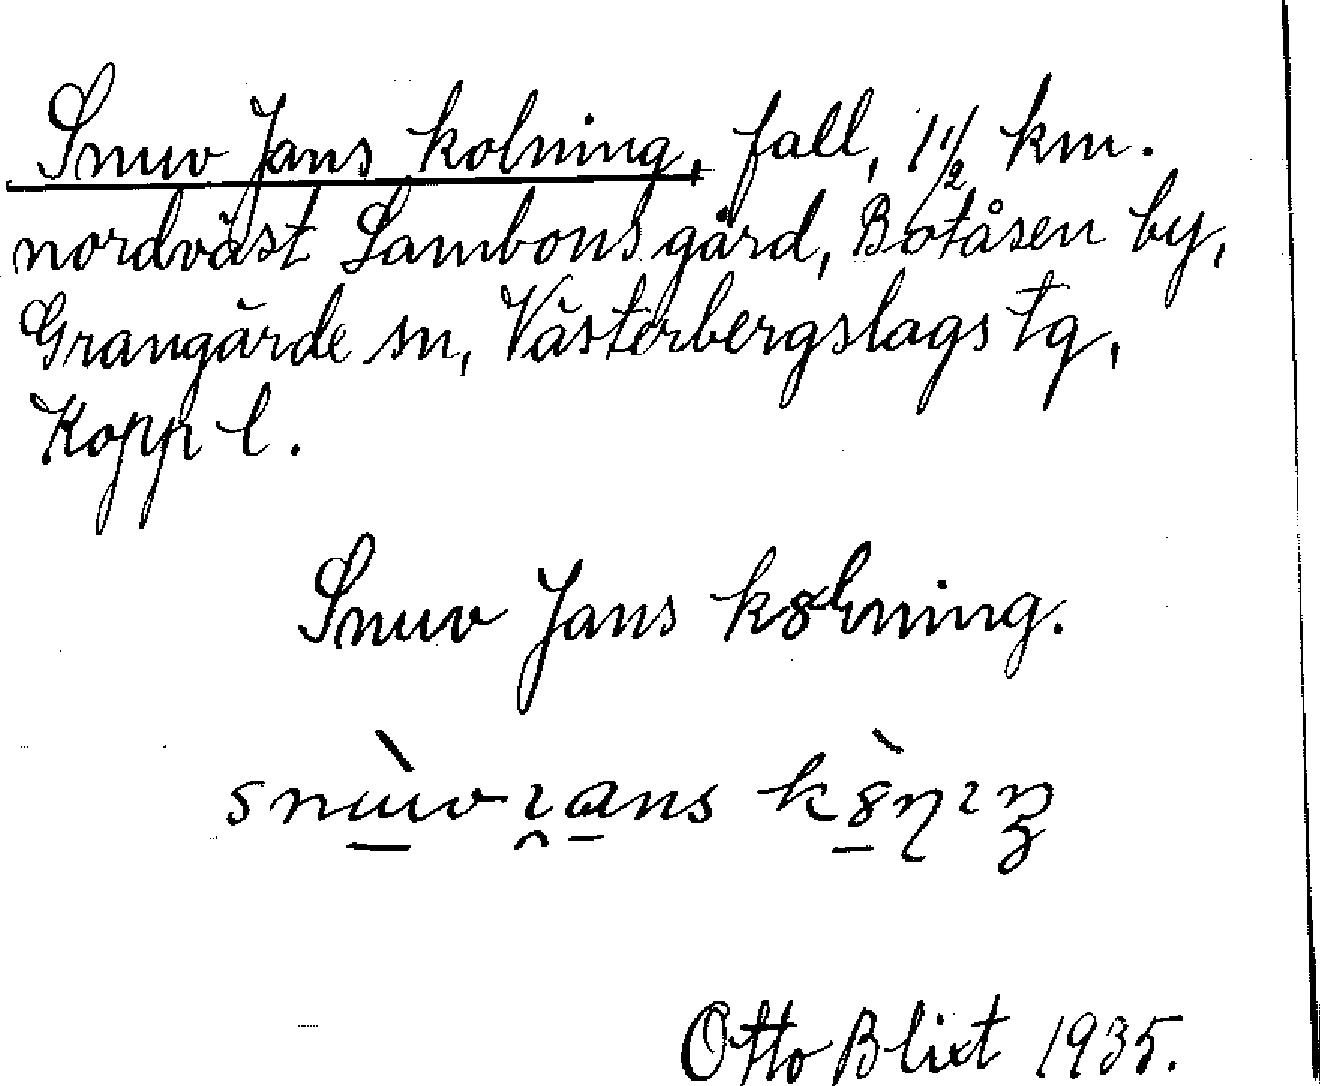 Snuv Jans kolning, fall, 1 1/2 km.
nordväst Lambons gård, Botåsen by,
Grangärde sn, Västerbergslags tg,
Kopp l.
Snuv Jans kolning.
Otto Blixt 1935.